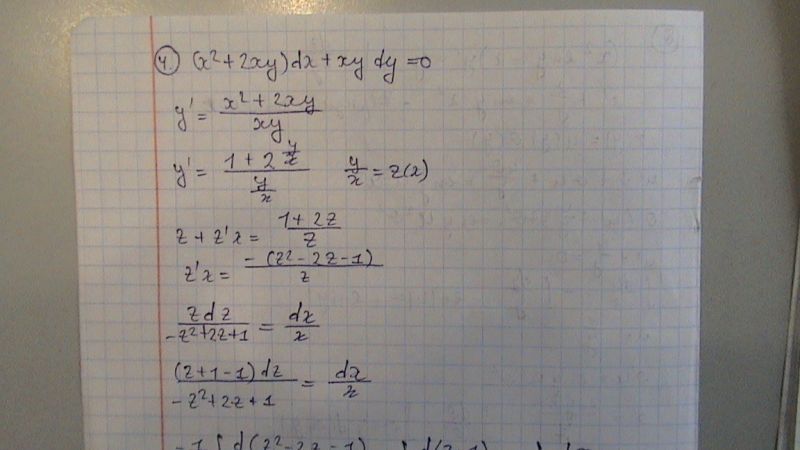 4. (x² + 2xy)dx + xy dy = 0
y' = (x² + 2xy)/(xy)
y' = (1 + 2 y/x)/(y/x)    y/x = z(x)
z + z'x = (1 + 2z)/z
z'x = -(z² - 2z - 1)/z
zdz/(-z² + 2z + 1) = dx/x
(z + 1 - 1)dz/(-z² + 2z + 1) = dx/x